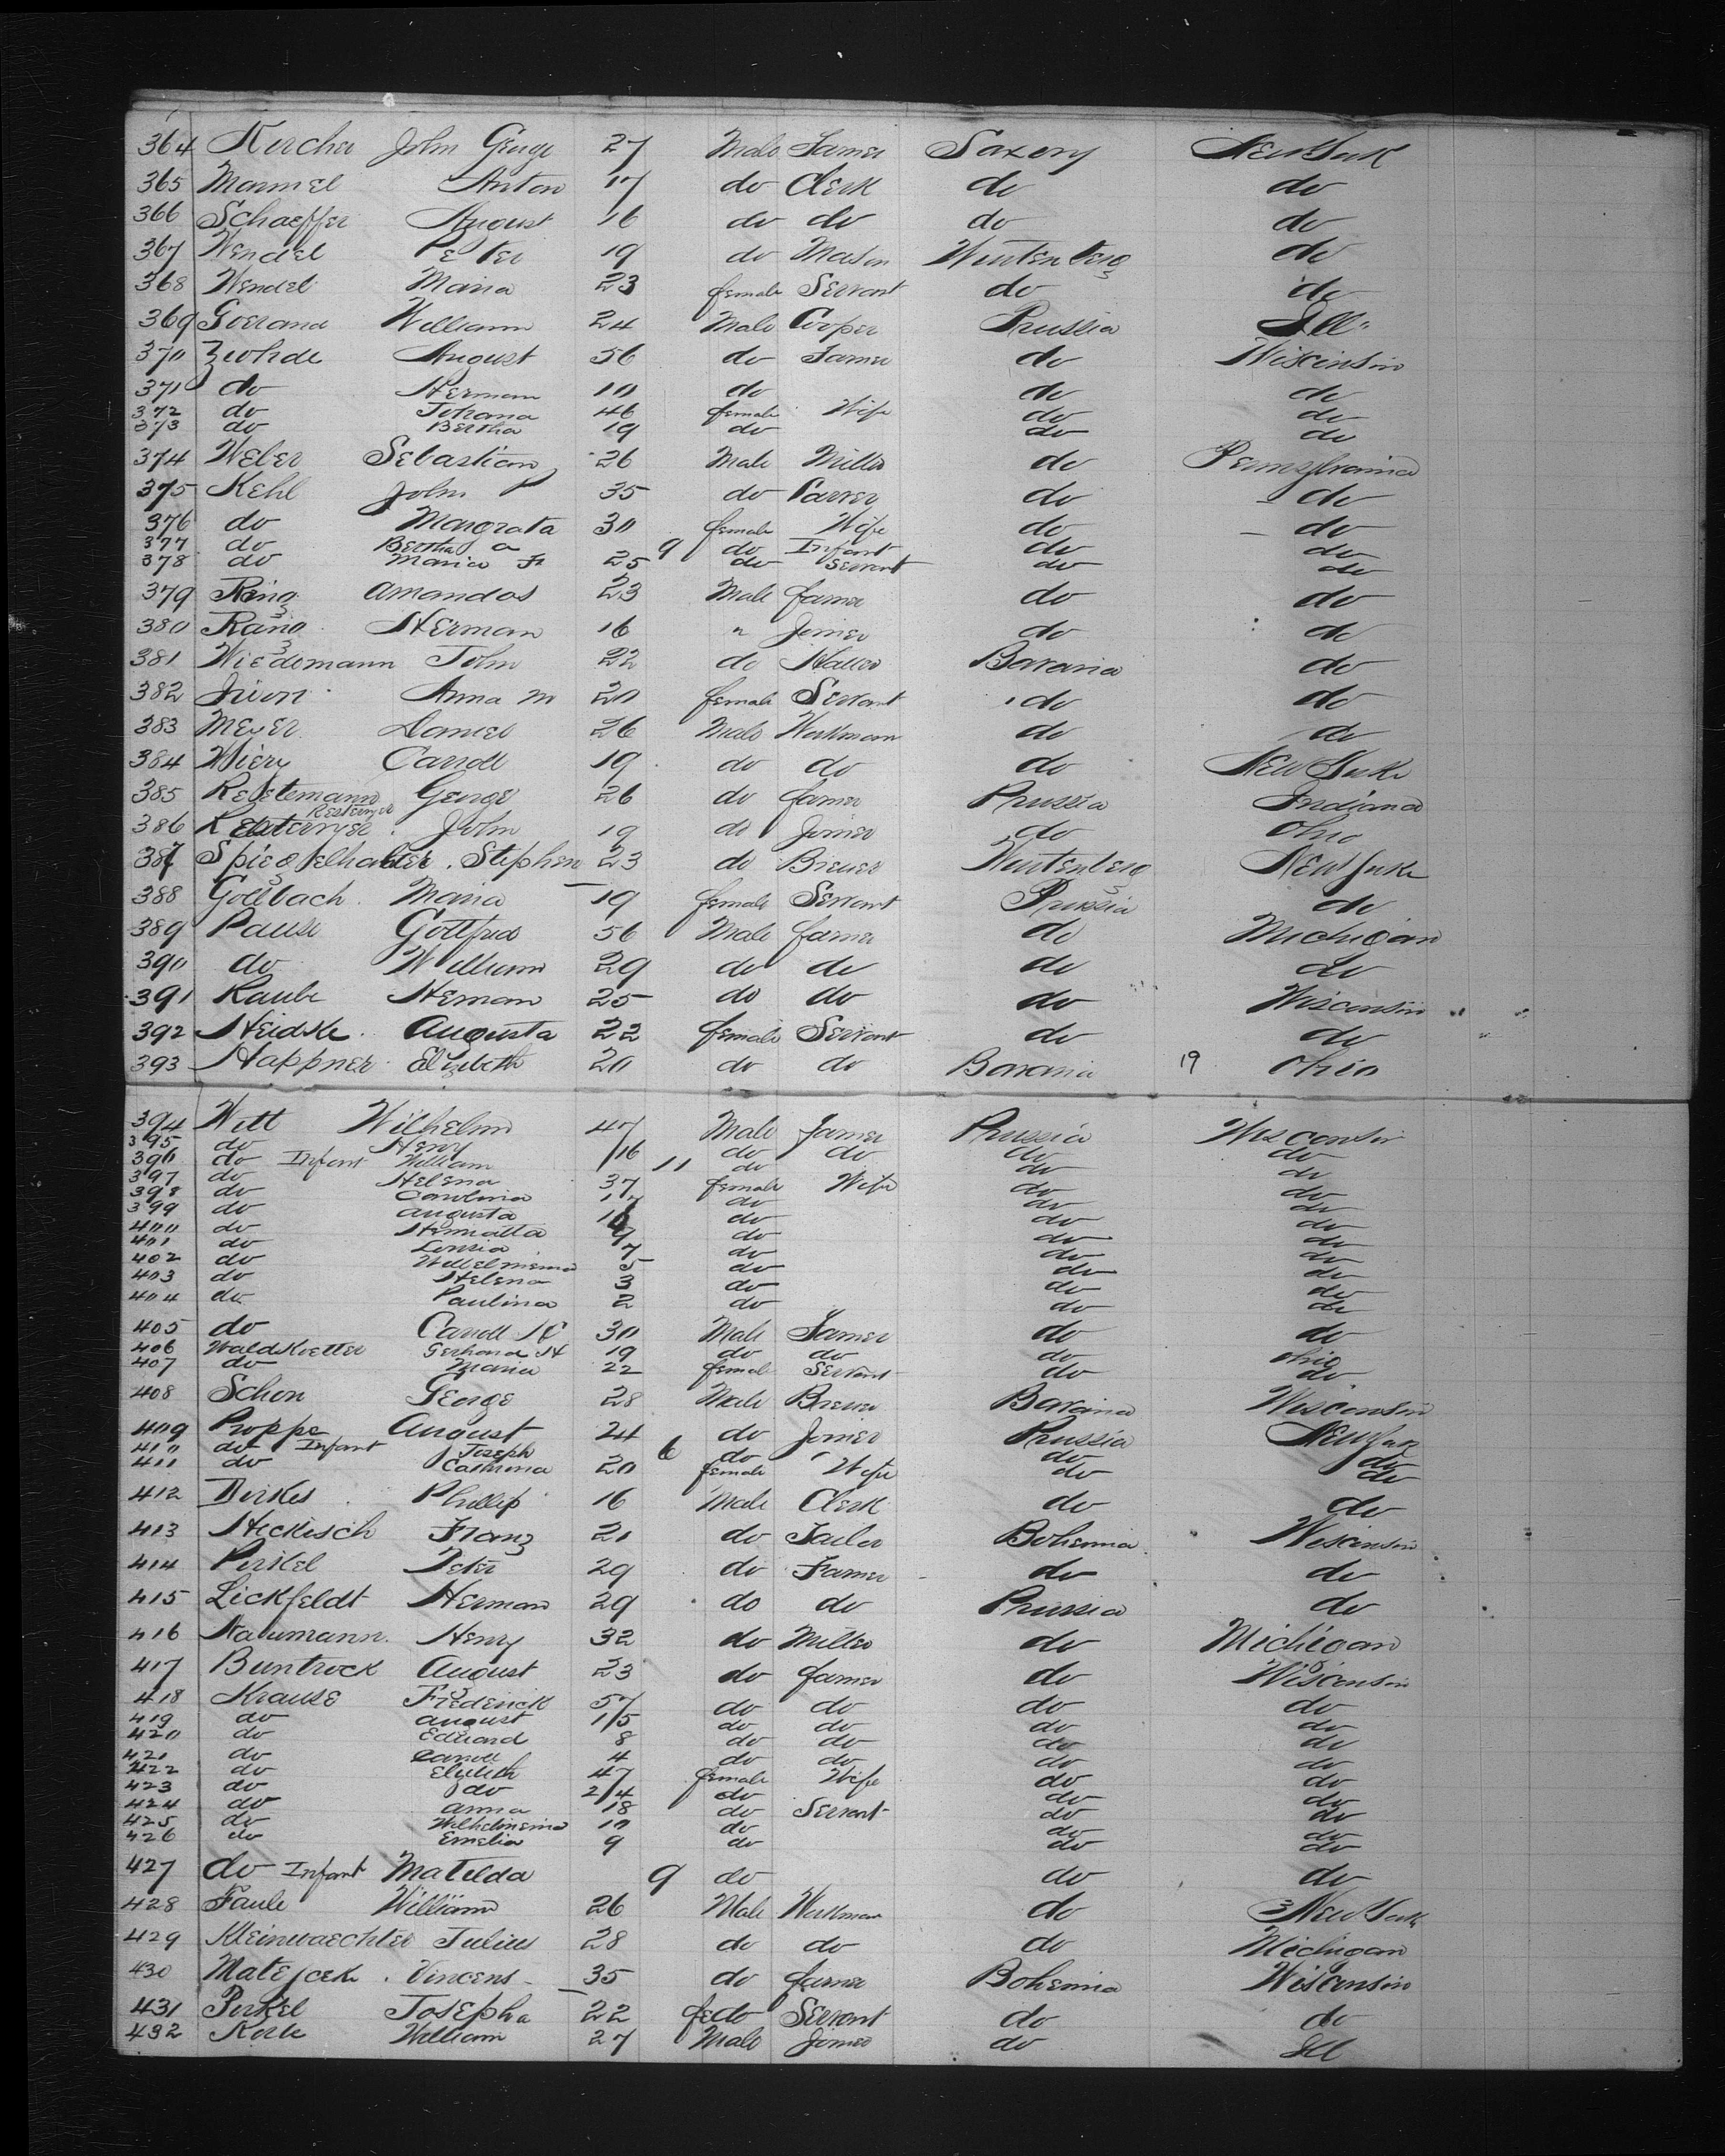 364 Kercher John George 27 Male Farmer Saxony New York
365 Mammel Anton 17 do Clerk do do
366 Schaeffer August 16 do do do do
367 Wendel Peter 19 do Mason Wurtenberg do
368 Wendel Maria 23 female Servant do do
369 William 24 Male Cooper Prussia Ill"
370 Zwohde August 56 do Farmer do Wisconsin
371 do Herman 10 do do do
372 do Johana 46 female Wife do do
373 do Bertha 19 do do do
374 Weber Sebastian 26 Male Miller do Pennsylvania
375 Kehl John P 35 do do do
376 do Margrata 30 female Wife do do
377 do Bertha a 9 do Infant do do
378 do Maria F 25 do Servent do do
379 Ring Amandos 23 Male farmer do do
380 Rang Herman 16 " Joiner do do
381 Wiedemann John 22 do Bavaria do
382 Anna M 20 female Servant do do
383 Meyer Daniel 26 Male Workman do do
384 Wiery Caroll 19 do do do New York
385 Redetemann George 26 do farmer Prussia Indiana
Restemyer
386 John 19 do Joiner do Ohio
387 Spiegelhalter Stephen 23 do Brewer Wurtenberg New York
388 Gollbach Maria 19 female Servant Prussia do
389 Pause Gottfried 56 Male farmer do Michigan
390 do William 29 do do do do
391 Raube Heman 25 do do do Wisconsin
392 Heidke Augusta 22 female Servant do do
393 Happner Elizibeth 20 do do Bavaria 19 Ohio
394 Witt Wilhelm 47 Male farmer Prussia Wisconsin
395 do Henry 16 do do do do
396 do Infant William 11 do do do
397 do Helena 37 female Wife do do
398 do Carolina 17 do do do
399 do Augusta do do do
400 do Henriatta 9 do do do
401 do Lousia 7 do do do
402 do Willelmiema 5 do do do
403 do Helena 3 do do do
404 do Paulina 2 do do do
405 do Caroll H 30 Male Farmer do do
406 Waldkoetter Gerhard H 19 do do do Ohio
407 do Maria 22 female Servant do do
408 Schon George 28 Male Brewer Bavaria Wisconsin
409 Proppe August 24 do Joiner Prussia New York
410 do Infant Joseph 6 do do do
411 do Cathrina 20 female Wife do do
412 Dirkes Phillip 16 Male Clerk do do
413 Heckisch Franz 21 do Tailor Bohemia Wisconsin
414 Perkel Peter 29 do Farmer do do
415 Lickfeldt Herman 29 do do Prussia do
416 Naumann Henry 32 do Miller do Michigan
417 Buntrock August 23 do farmer do Wisconsin
418 Krause Frederick 57 do do do do
419 do August 15 do do do do
420 do Edward 8 do do do do
421 do Caroll 4 do do do do
422 do Elizibeth 47 female Wife do do
423 do do 24 do do do
424 do Anna 18 do Servant do do
425 do Wilhelmiena 10 do do do
426 do Emelia 9 do do do
427 do Infant Matelda 9 do do do
428 Faule William 26 Male Workman do New York
429 Kleinwaechter Julius 28 do do do Michigan
430 Matejcek Vincens 35 do farmer Bohemia Wisconsin
431 Perkel Josepha 22 fe do Servant do do
432 Korle William 27 Male Joiner do Ill